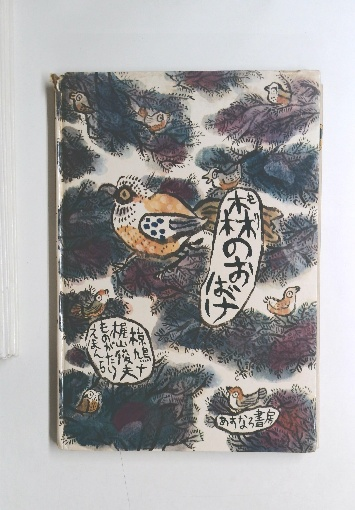 森のおばけ
椋鳩十
梶山俊夫
ものがたり
えほん
あすなろ書房